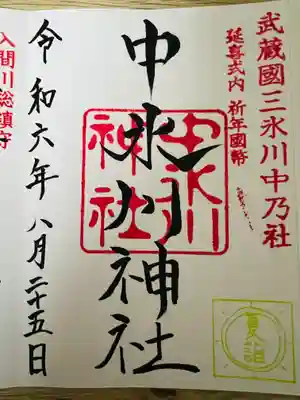 武蔵國三氷川中乃社
延喜式内 祈年國幣
中氷川神社
中氷川
神社
令和六年八月二十五日
入間川総鎮守
夏詣